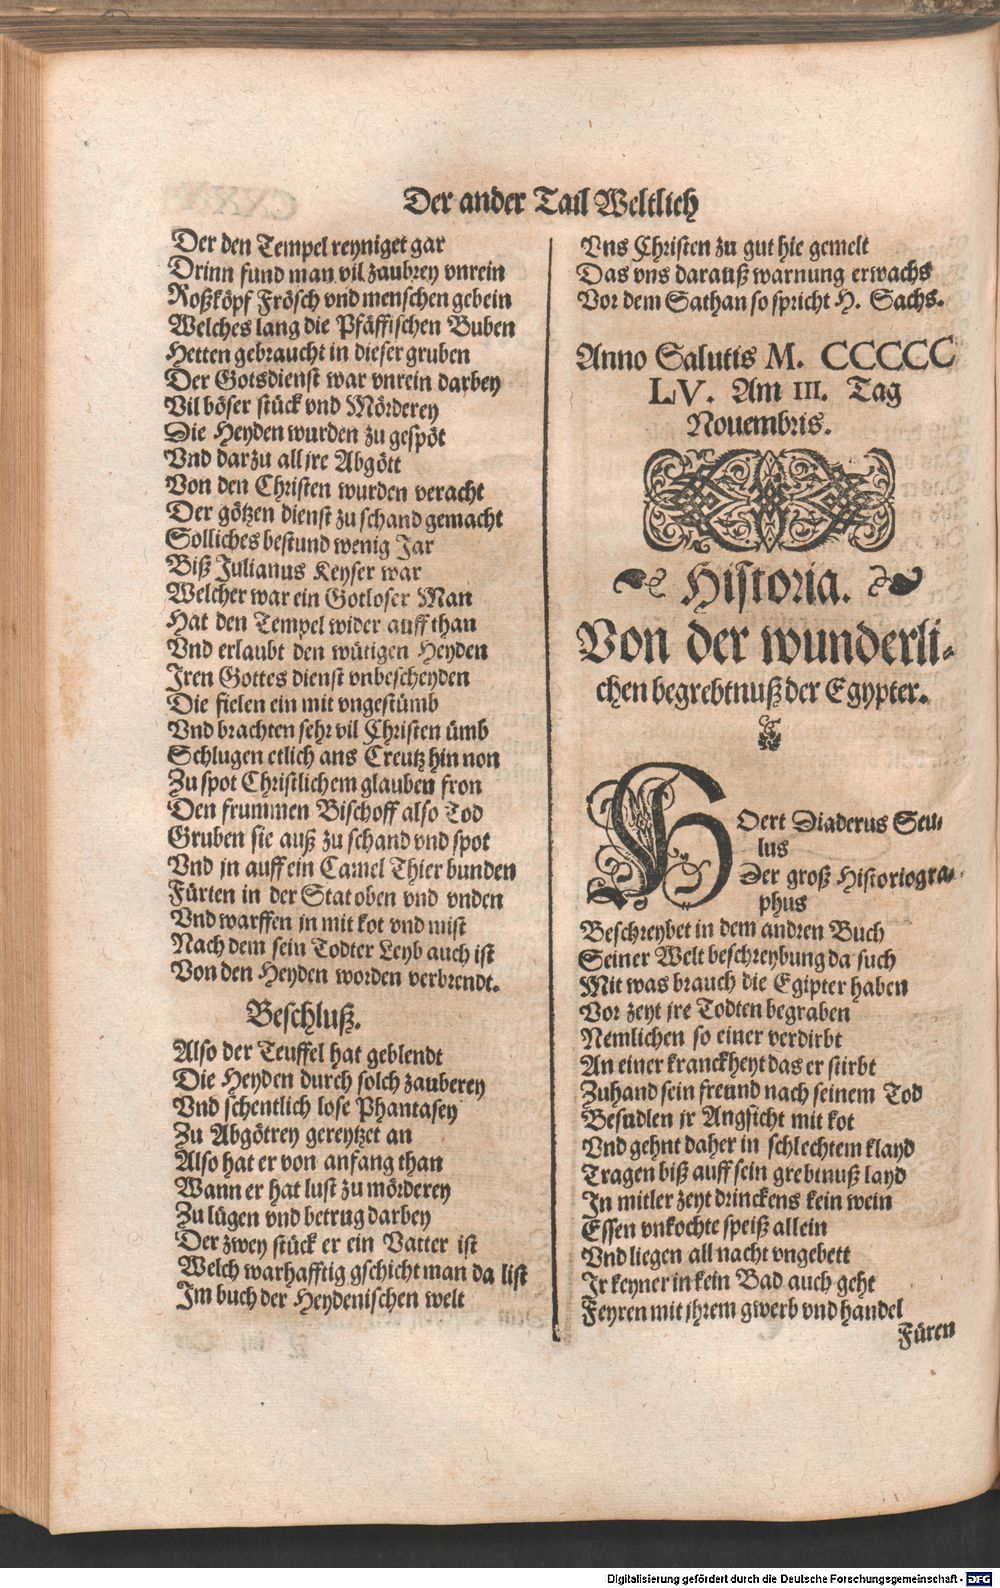 Der ander Tail Weltlich
Der den Tempel reyniget gar
Drinn fund man vil zaubrey vnrein
Roßköpf Frösch vnd menschen gebein
Welches lang die Pfäffischen Buben
Hetten gebraucht in dieser gruben
Der Gotsdienst war vnrein darbey
Vil böser stück vnd Mörderey
Die Heyden wurden zu gespöt
Vnd darzu all jre Abgött
Von den Christen wurden veracht
Der götzen dienst zu schand gemacht
Solliches bestund wenig Jar
Biß Julianus Keyser war
Welcher war ein Gotloser Man
Hat den Tempel wider auff than
Vnd erlaubt den wütigen Heyden
Iren Gottes dienst vnbescheyden
Die fielen ein mit vngestümb
Vnd brachten sehr vil Christen ümb
Schlugen etlich ans Creutz hin non
Zu spot Christlichem glauben fron
Den frummen Bischoff also Tod
Gruben sie auß zu schand vnd spot
Vnd jn auff ein Camel Thier bunden
Fürten in der Stat oben vnd vnden
Vnd warffen jn mit kot vnd mist
Nach dem sein Todter Leyb auch ist
Von den Heyden worden verbrendt.
Beschluß.
Also der Teuffel hat geblendt
Die Heyden durch solch zauberey
Vnd schentlich lose Phantasey
Zu Abgötrey gereytzet an
Also hat er von anfang than
Wann er hat lust zu mörderey
Zu lügen vnd betrug darbey
Der zwey stück er ein Vatter ist
Welch warhafftig gschicht man da list
Im buch der Heydenischen welt
Vns Christen zu gut hie gemelt
Das vns darauß warnung erwachs
Vor dem Sathan so spricht H. Sachs.
Anno Salutis M. CCCCC
LV. Am III. Tag
Nouembris.
Historia.
Von der wunderli-
chen begrebtnuß der Egypter.
HOert Diaderus Seu-
lus
Der groß Historiogra-
phus
Beschreybet in dem andren Buch
Seiner Welt beschreybung da such
Mit was brauch die Egipter haben
Vor zeyt jre Todten begraben
Nemlichen so einer verdirbt
An einer kranckheyt das er stirbt
Zuhand sein freund nach seinem Tod
Besudlen jr Angsicht mit kot
Vnd gehnt daher in schlechtem klayd
Tragen biß auff sein grebtnuß layd
In mitler zeyt drinckens kein wein
Essen vnkochte speiß allein
Vnd liegen all nacht vngebett
Ir keyner in kein Bad auch geht
Feyren mit jhrem gwerb vnd handel
Füren
Digitalisierung gefördert durch die Deutsche Forschungsgemeinschaft - DFG